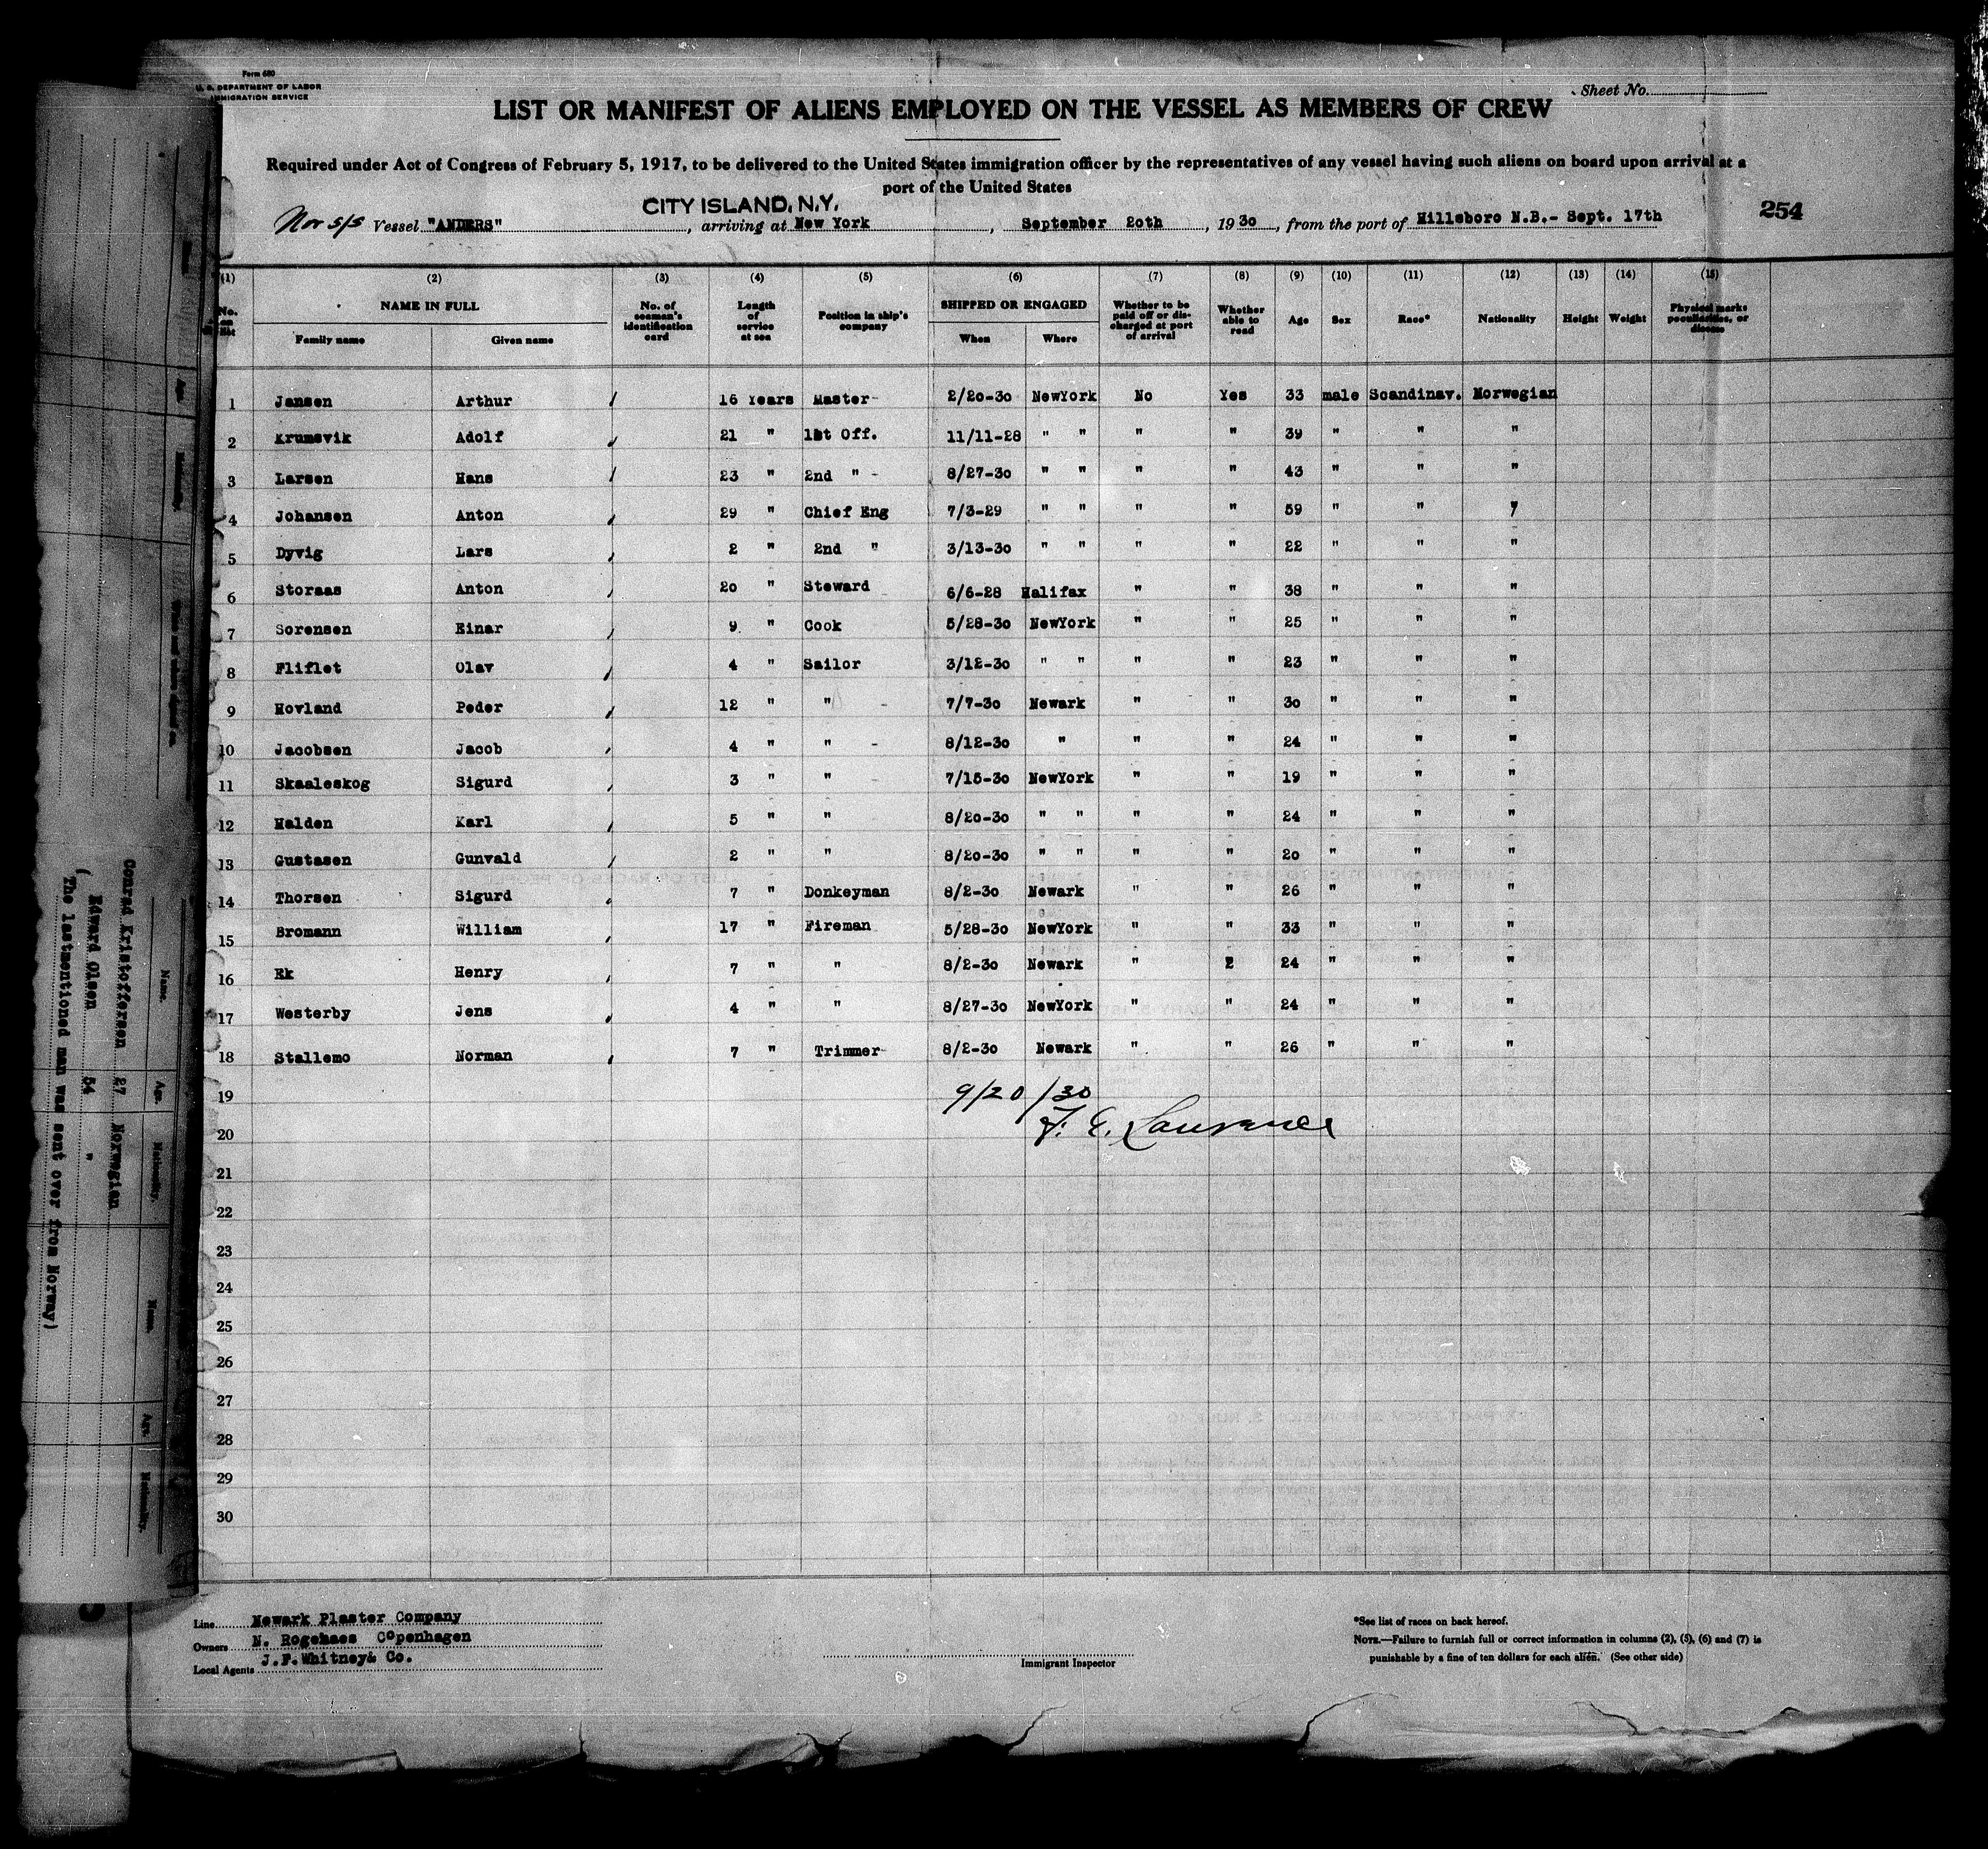 Form 680
U. S. DEPARTMENT OF LABOR
IMMIGRATION SERVICE
Sheet No.
LIST OR MANIFEST OF ALIENS EMPLOYED ON THE VESSEL AS MEMBERS OF CREW
Required under Act of Congress of February 5, 1917, to be delivered to the United States immigration officer by the representatives of any vessel having such aliens on board upon arrival at a
port of the United States
CITY ISLAND, N.Y.
Nor s/s Vessel "ANDERS", arriving at New York, September 20th, 1930, from the port of Hillsboro N.B.- Sept. 17th
254
(1) (2) (3) (4) (5) (6) (7) (8) (9) (10) (11) (12) (13) (14) (15)
No. on list NAME IN FULL Family name Given name No. of seaman's identification card Length of service at sea Position in ship's company SHIPPED OR ENGAGED When Where Whether to be paid off or discharged at port of arrival Whether able to read Age Sex Race* Nationality Height Weight Physical marks peculiarities, or disease
1 Jansen Arthur 16 Years Master- 2/20-30 NewYork No Yes 33 male Scandinav. Norwegian
2 Krumsvik Adolf 21 " 1st Off. 11/11-28 " " " " 39 " " "
3 Larsen Hans 23 " 2nd " - 8/27-30 " " " " 43 " " "
4 Johansen Anton 29 " Chief Eng 7/3-29 " " " " 59 " " "
5 Dyvig Lars 2 " 2nd " 3/13-30 " " " " 22 " " "
6 Storaas Anton 20 " Steward 6/6-28 Halifax " " 38 " " "
7 Sorensen Einar 9 " Cook 5/28-30 NewYork " " 25 " " "
8 Fliflet Olav 4 " Sailor 3/12-30 " " " " 23 " " "
9 Hovland Peder 12 " " - 7/7-30 Newark " " 30 " " "
10 Jacobsen Jacob 4 " " - 8/12-30 " " " 24 " " "
11 Skaaleskog Sigurd 3 " " - 7/15-30 NewYork " " 19 " " "
12 Halden Karl 5 " " 8/20-30 " " " " 24 " " "
13 Gustasen Gunvald 2 " " 8/20-30 " " " " 20 " " "
14 Thorsen Sigurd 7 " Donkeyman 8/2-30 Newark " " 26 " " "
15 Bromann William 17 " Fireman 5/28-30 NewYork " " 33 " " "
16 Ek Henry 7 " " 8/2-30 Newark " 2 24 " " "
17 Westerby Jens 4 " " 8/27-30 NewYork " " 24 " " "
18 Stallemo Norman 7 " Trimmer- 8/2-30 Newark " " 26 " " "
19
9/20/30
20
F. E. Lawrence
21
22
23
24
25
26
27
28
29
30
Line Newark Plaster Company
Owners N. Rogenaes Copenhagen
Local Agents J.F.Whitney& Co.
Immigrant Inspector
*See list of races on back hereof.
NOTE.—Failure to furnish full or correct information in columns (2), (5), (6) and (7) is
punishable by a fine of ten dollars for each alien. (See other side)
Name. Age. Nationality. Name. Age. Nationality.
Conrad Kristoffersen 27 Norwegian
Edward Olsen 54 "
( The lastmentioned man was sent over from Norway)